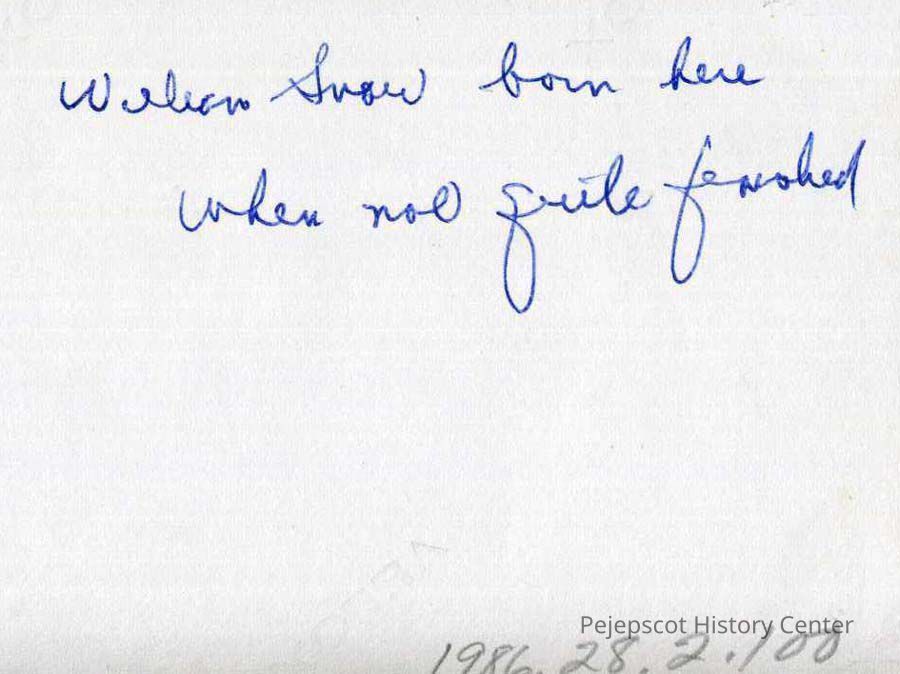 William Snow born here
when not quite finished
Pejepscot History Center
1986.28.2.100